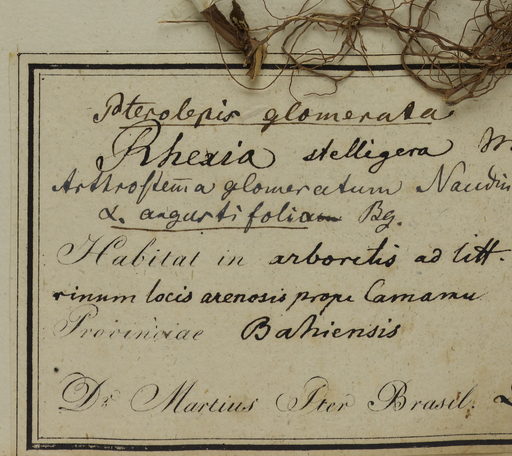 Pterolepis glomerata
Rhexia stelligera M
Arthrostem̅a glomeratum Naudin
α. angustifolia Bg.
Habitat in arboretis ad litt-
rinum locis arenosis prope Camamu
Provinciae Bahiensis
Dr Martius Iter Brasil.